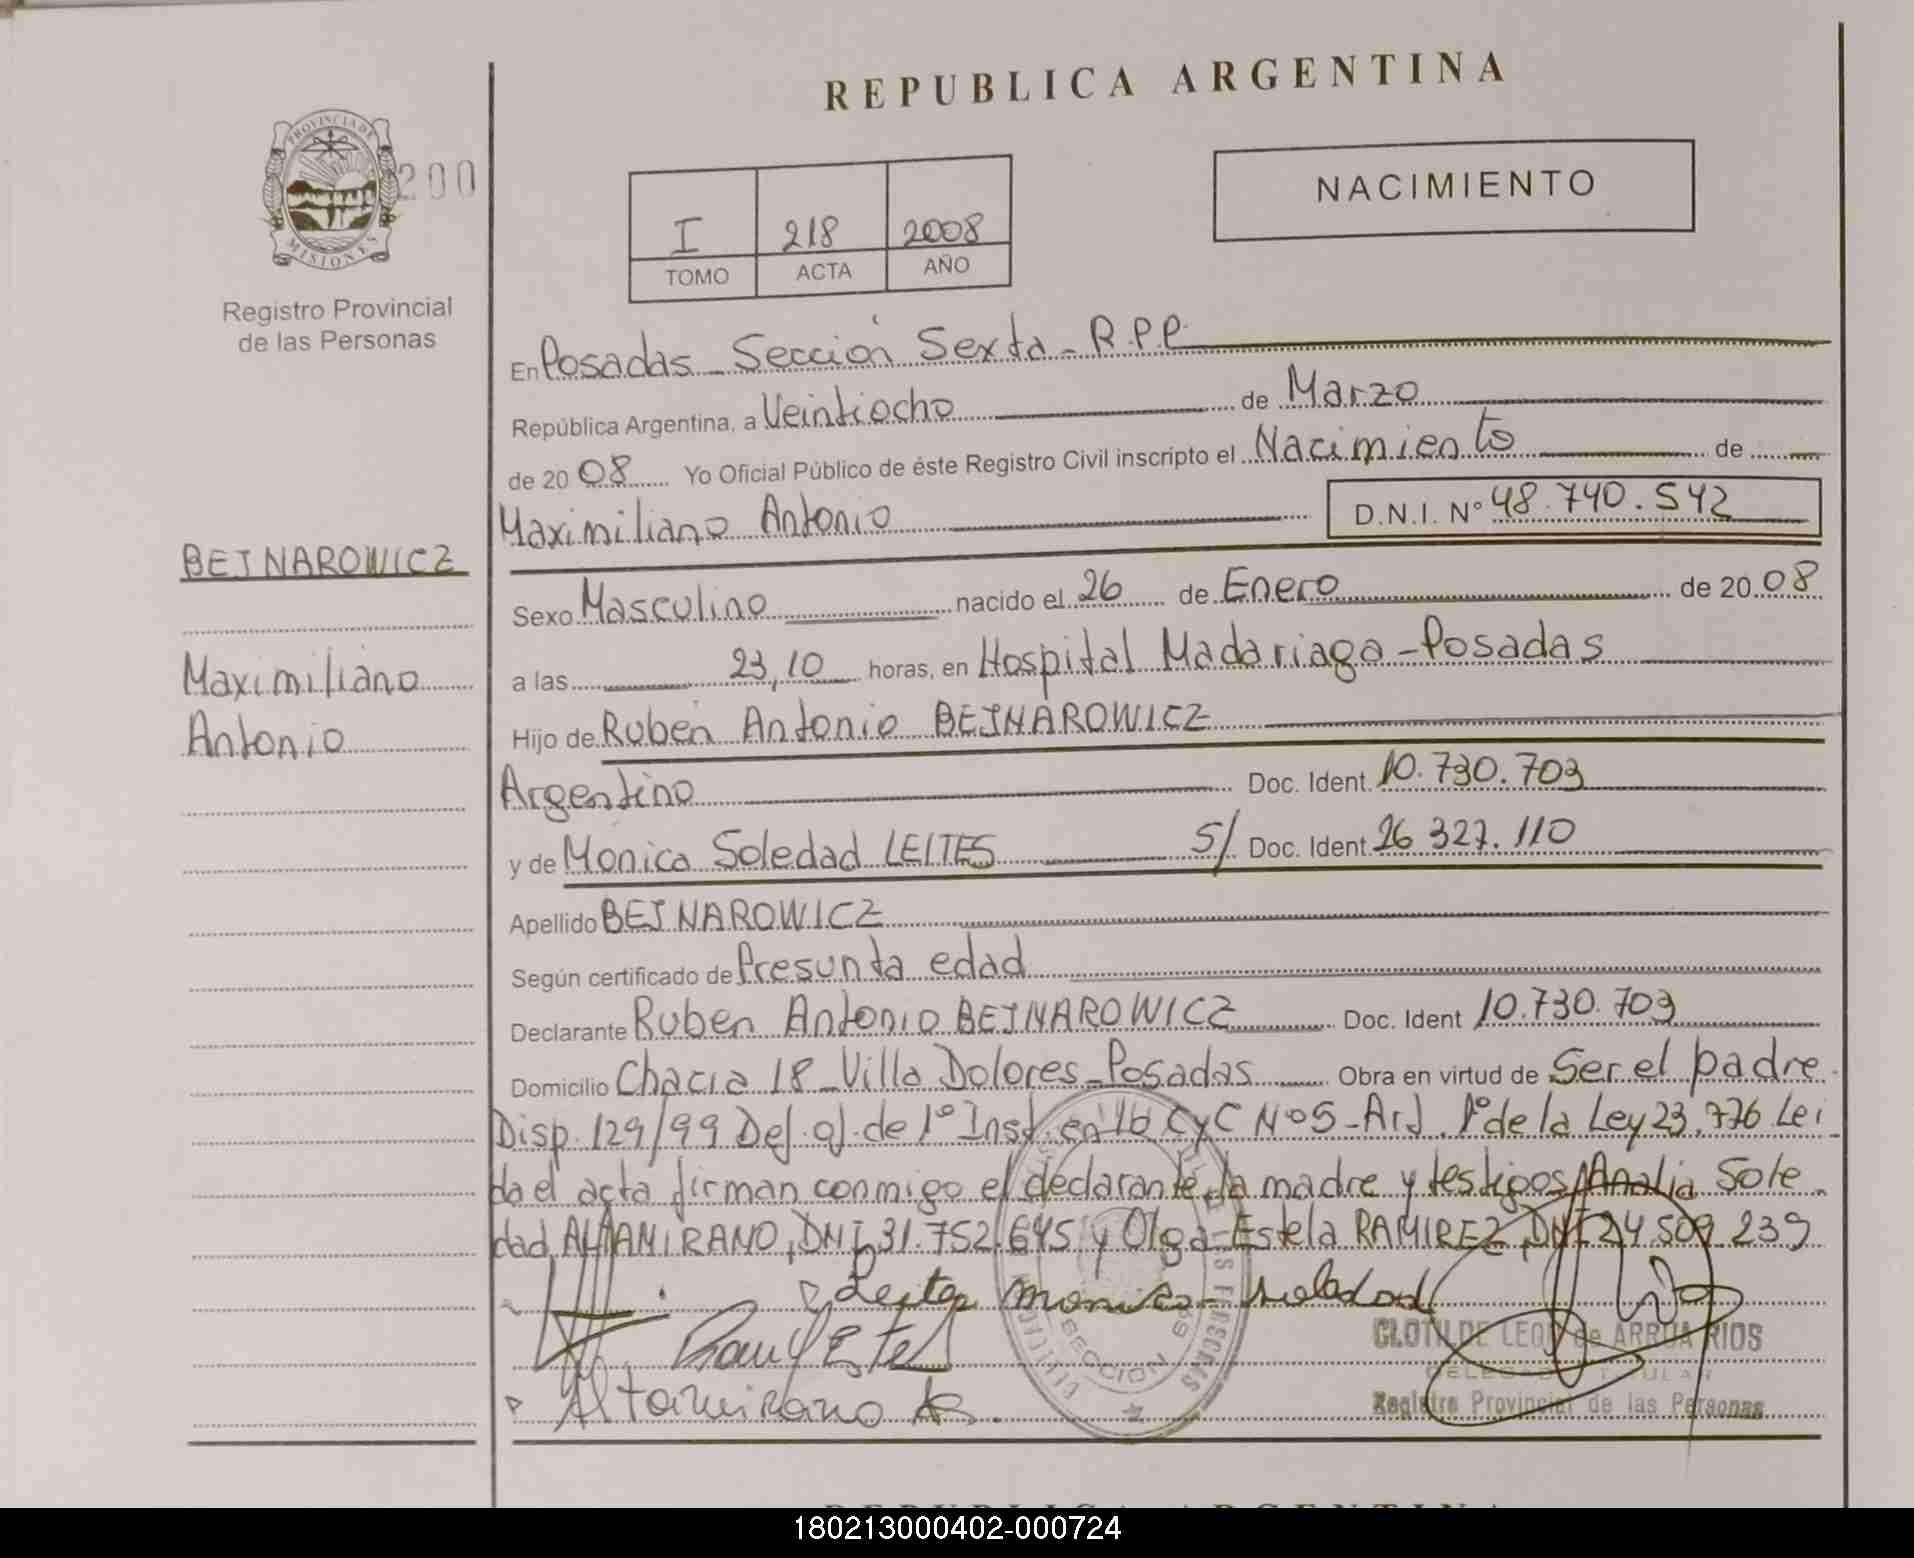 REPUBLICA ARGENTINA
PROVINCIA DE
MISIONES
200
Registro Provincial
de las Personas
I 218 2008
TOMO ACTA AÑO
NACIMIENTO
BEJNAROWICZ
Maximiliano
Antonio
En Posadas - Sección Sexta - R.P.P.
República Argentina, a Veintiocho de Marzo
de 2008 Yo Oficial Público de éste Registro Civil inscripto el Nacimiento de
Maximiliano Antonio D.N.I. Nº 48.740.542
Sexo Masculino nacido el 26 de Enero de 2008
a las 23,10 horas, en Hospital Madariaga - Posadas
Hijo de Rubén Antonio BEJNAROWICZ
Argentino Doc. Ident. 10.730.703
y de Monica Soledad LEITES S/ Doc. Ident. 26 327.110
Apellido BEJNAROWICZ
Según certificado de Presunta edad
Declarante Ruben Antonio BEJNAROWICZ Doc. Ident 10.730.703
Domicilio Chacra 18 - Villa Dolores - Posadas Obra en virtud de Ser el padre.
Disp. 129/99 Def. of. de 1º Inst. en lo CyC Nº 5 - Art. 1º de la Ley 23.776 Lei
da el acta firman conmigo el declarante, la madre y testigos Analia Sole
dad ALTAMIRANO, DNI 31.752.645 y Olga Estela RAMIREZ, DNI 24.509.239
Leites Monica Soledad
Altamirano A S.
SECCION
CLOTILDE LEON de ARRUA RIOS
DELEGADA TITULAR
Registro Provincial de las Personas
REPUBLICA ARGENTINA
180213000402-000724